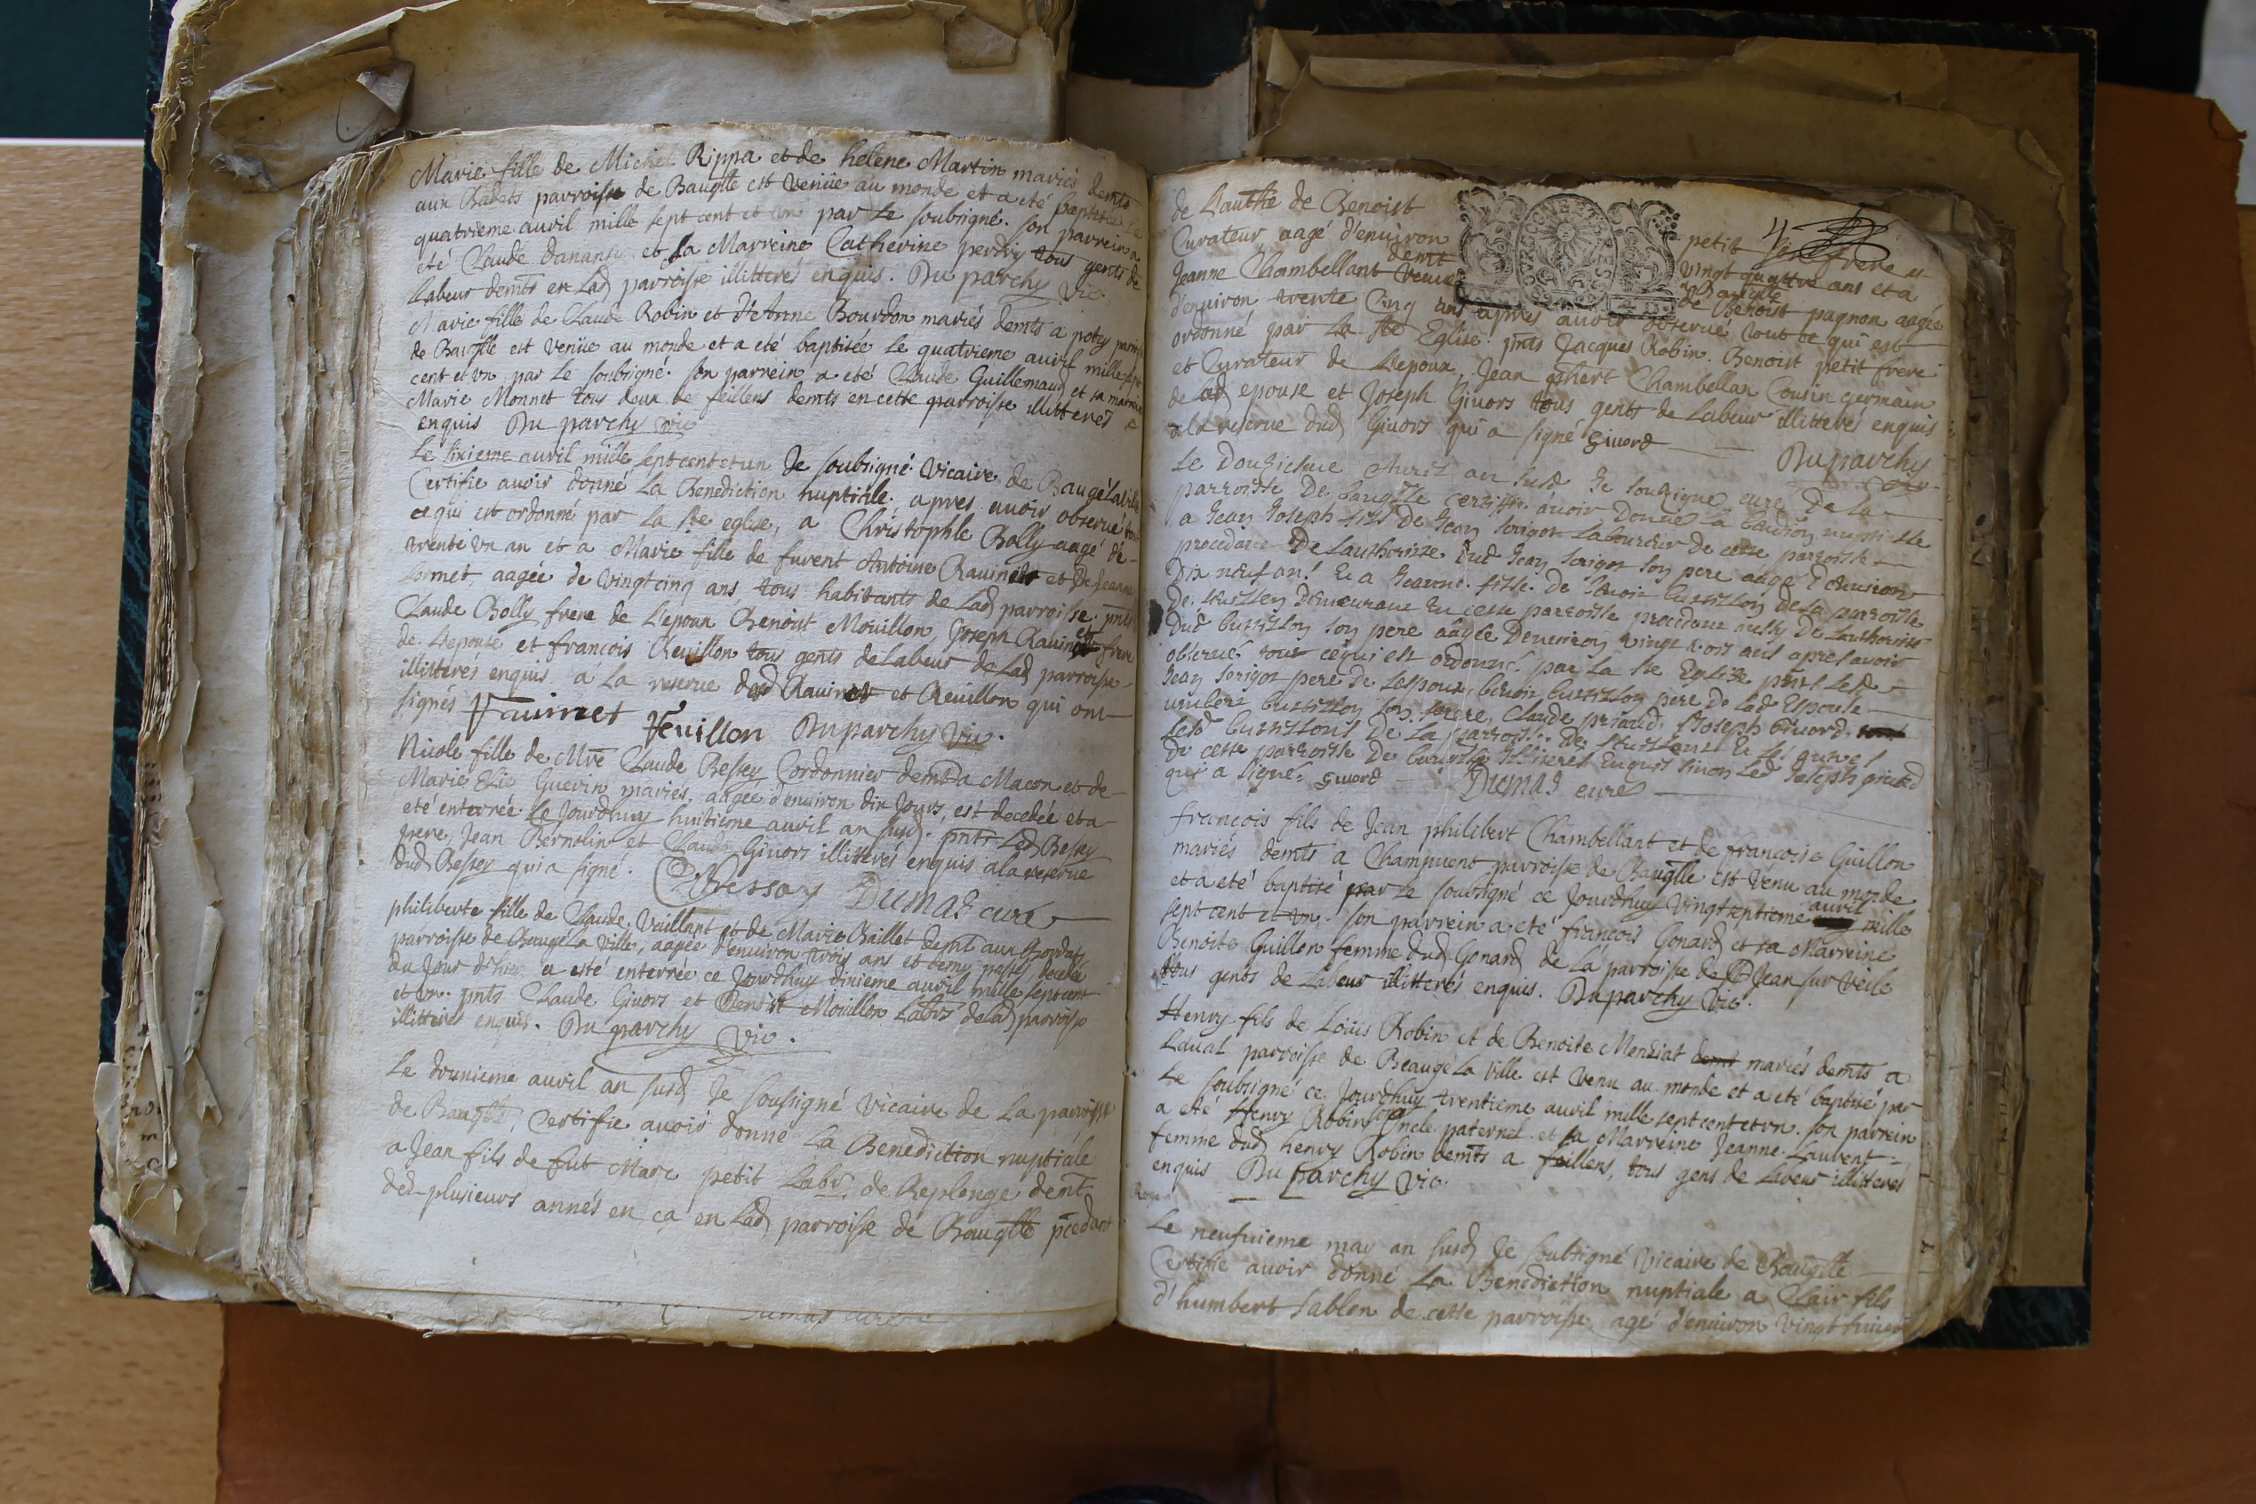 Marie fille de Michel Rippa et de helene Martin mariés demts
aux Badets parroisse de Bauglle est venüe au monde et a eté baptisée le
quatrieme auril mille sept cent et un par le soubsigné. son parrein a
eté Claude Danans et sa Marreine Catherine perdrix tous gents de
Labeur demts en Lad parroisse illitterés enquis. Du parchy vic.
Marie fille de Claude Robin et d'Anne Bourdon mariés demts a potey parroisse
de Bauglle est venüe au monde et a eté baptisée le quatrieme auril mille sept
cent et vn par le soubsigné. son parrein a eté Claude Guillemaud et sa marreine
Marie Monnet tous deux de feillens demts en cette parroisse illitterés
enquis Du parchy vic
Le sixieme auril mille sept cent et un Je soubsigné vicaire de Baugé la ville
Certifie auoir donné La Benediction nuptiale. apres auoir obserué tout
ce qui est ordonné par la ste eglise, a Christophle Bolly aagé de
trente vn an et a Marie fille de furent Antoine Rauinet et de Jeanne
Lornet, aagée de vingtcinq ans tous habitants de Lad parroisse. pnts
Claude Bolly frere de L'epoux Benoist Mouillon, Joseph Rauinet frere
de L'epouse et françois Reuillon tous gents de Labeur de Lad parroisse
illitterés enquis a la reserue dud Rauinet et Reuillon qui ont
signés Rauinet Reuillon Duparchy vic.
Nicole fille de Mre Claude Bessey Cordonnier demt a Macon et de
Marie Guerin mariés, aagée d'enuiron dix Jours, est decedée et a
eté enterrée le Jourdhuy huitieme auril an susd. pnts Led Bessey
pere, Jean Bernolin et Claude Giuors illitterés enquis a la reserue
dud Bessey qui a signé. CBessay Dumas curé
philiberte fille de Claude Vaillant et de Marie Baillet demt aux
parroisse de Baugé La Ville, aagée d'enuiron trois ans et demy passés decedée
du Jour d'hier a esté enterrée ce Jourdhuy dixieme auril mille sept cent
et vn. pnts Claude Giuors et Benoist Mouillon Labrs de Lad parroisse
illitterés enquis. Du parchy vic.
Le douzieme auril an susd Je soussigné vicaire de La parroisse
de Bauglle, Certifie auoir donné La Benediction nuptiale
a Jean fils de fut Marc petit Labr. de Replonge demt
des-plusieurs annés en ça en Lad parroisse de Bauglle pcedant
Dumas curé
de L'authte de Benoist petit son frere et
Curateur aagé d'enuiron vingt quattre ans et a
Jeanne Chambellant demt a Bauglle veuue de Benoist pagnon aagée
d'enuiron trente Cinq ans apres auoir obserué tout ce qui est
ordonné par La ste Eglise. pnts Jacques Robin. Benoist petit frere
et Curateur de L'epoux, Jean phbert Chambellan Cousin germain
de lad epouse et Joseph Giuors tous gents de Labeur illitterés enquis
a la reserue dud Giuors qui a signé Giuord Duparchy vic
Le douzieme Auril an susd Je souzigné curé De La
parroisse De Bauglle certiffie auoir Donné La benedion nuptialle
a Jean Joseph fils De Jean Sorigot Laboureur de cette parroisse
procedant De Lauthorizte Dud Jean Sorigot son pere aagé d'enuiron
Dix neuf ans Et a Jeanne fille De Benoist buttillon De la parroisse
De feillen Demeurant En cette parroisse procedant aussy De Lauthorizte
Dud buttillon son pere aagée Denuiron vingt ans apres auoir
obserué tout ce qui est ordonné par La Ste Eglise pnts Led
Jean Sorigot pere De Lespoux, benoist buttillon pere De Lad Espouse
umbert buttillon son frere, Claude Joseph Giuord
Lesd buttillons De La parroisse De feillens Et
De cette parroisse De bauglle Illiterés Enquis sinon Led Joseph giuord
qui a signé. Giuord Dumas curé
françois fils de Jean philibert Chambellant et de françoise Guillon
mariés demts a Champuent parroisse de Bauglle est venu au monde
et a eté baptisé par Le soubsigné ce Jourdhuy vingtseptieme auril mille
sept cent et vn. son parrein a eté françois Gonard et sa Marreine
Benoite Guillon femme dud Gonard de La parroisse de St Jean sur veile
tous gents de Labeur illitterés enquis. Duparchy vic.
Henry fils de Loüis Robin et de Benoite Menziat demt mariés demts a
Laual parroisse de Beaugé La ville est venu au monde et a eté baptisé par
Le soubsigné ce Jourdhuy trentieme auril mille sept cent et vn. son parrein
a eté Henry Robin son Oncle paternel et sa Marreine Jeanne Laurent
femme dud henry Robin demts a feillens, tous gens de Labeur illitterés
enquis Du parchy vic.
Le neufuieme may an susd Je soubsigné vicaire de Bauglle
Certifie auoir donné La Benediction nuptiale a Clair fils
d'humbert Sablon de cette parroisse agé d'enuiron vingt huict